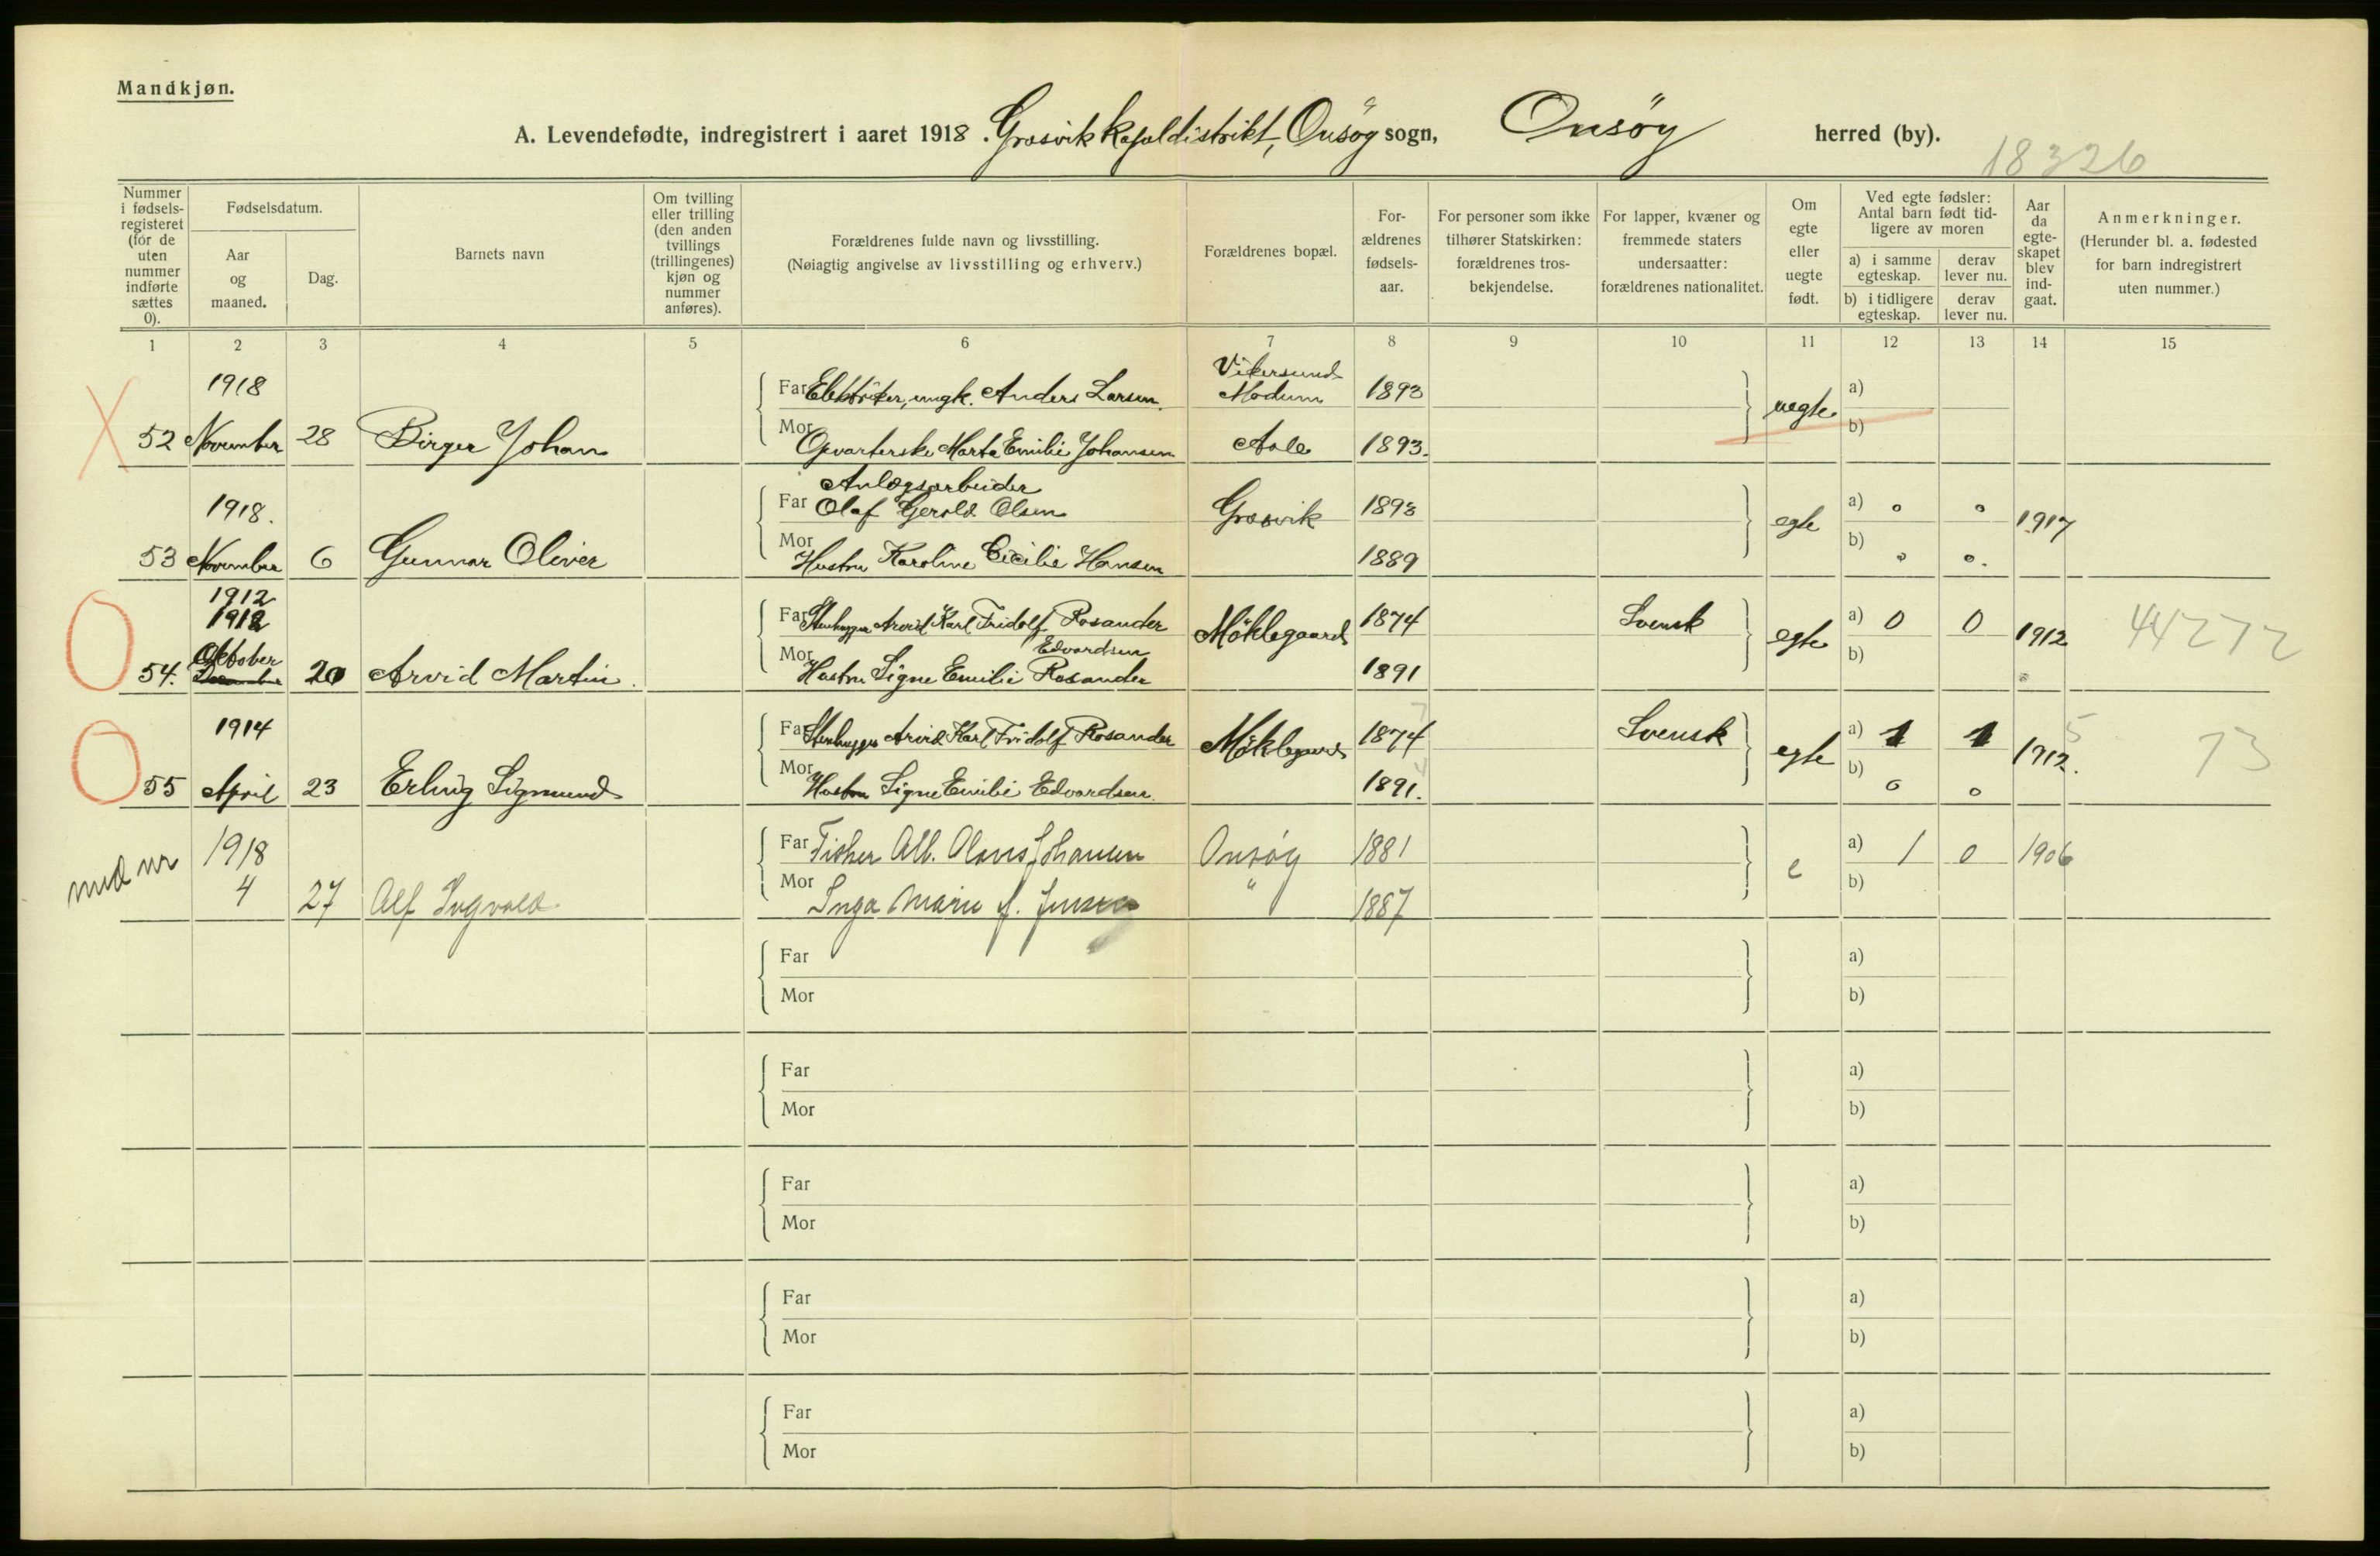 Mandkjøn.
A. Levendefødte, indregistrert i aaret 1918. Gresvik kapeldistrikt, Onsøy sogn, Onsøy herred (by).
18326
Nummer i fødsels-registeret (for de uten nummer indførte sættes 0).
Fødselsdatum.
Aar og maaned.
Dag.
Barnets navn
Om tvilling eller trilling (den anden tvillings (trillingenes) kjøn og nummer anføres).
Forældrenes fulde navn og livsstilling.
(Nøiagtig angivelse av livsstilling og erhverv.)
Forældrenes bopæl.
For-ældrenes fødsels-aar.
For personer som ikke tilhører Statskirken: forældrenes tros-bekjendelse.
For lapper, kvæner og fremmede staters undersaatter: forældrenes nationalitet.
Om egte eller uegte født.
Ved egte fødsler: Antal barn født tid-ligere av moren
a) i samme egteskap.
derav lever nu.
b) i tidligere egteskap.
derav lever nu.
Aar da egte-skapet blev ind-gaat.
Anmerkninger.
(Herunder bl. a. fødested for barn indregistrert uten nummer.)
1 2 3 4 5 6 7 8 9 10 11 12 13 14 15
1918 Far Elektriker, ungk. Anders Larsen. Vikersund Modum 1893 uegte a)
52 November 28 Birger Johan Mor Opvarterske Marta Emilie Johansen 1893. b)
1918. Far Anlegsarbeider Olaf Gerold Olsen Gresvik 1893 egte a) 0 0 1917
53 November 6 Gunnar Oliver Mor Hustru Karoline Cecilie Hansen 1889 b) 0 0.
1912
1912 Far Stenhugger Arvid Karl Fridolf Rosander Møklegaard 1874 Svensk egte a) 0 0 1912 44272
Oktober Edvardsen
54. 20 Arvid Martin. Mor Hustru Signe Emilie Rosander 1891 b)
1914 Far Stenhugger Arvid Karl Fridolf Rosander Møklegaard 1874 7 Svensk egte a) 1 1 1912. 5 73
55 April 23 Erling Sigmund Mor Hustru Signe Emilie Edvardsen. 1891. 4 b) 0 0
1918 Far Fisker Alb. Olaus Johansen Onsøy 1881 e a) 1 0 1906
4 27 Alf Ingvald Mor Inga Marie f. Jensen " 1887 b)
Far a)
Mor b)
Far a)
Mor b)
Far a)
Mor b)
Far a)
Mor b)
Far a)
Mor b)